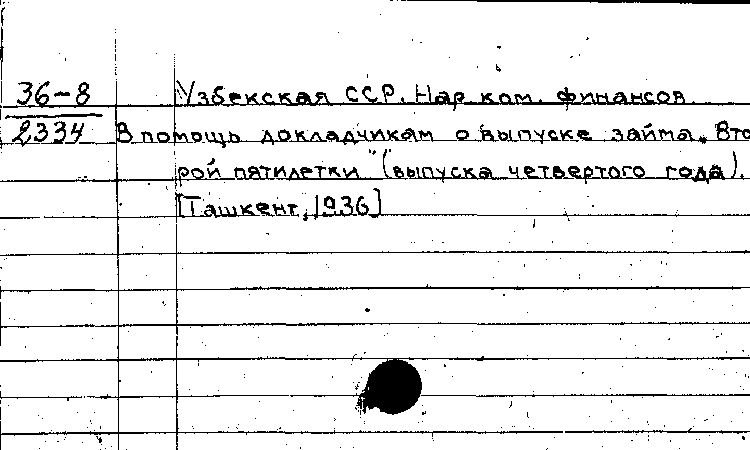 36-8 Узбекская ССР. Нар. ком. финансов.
2334 В помощь докладчикам о выпуске займа „Вто
рой пятилетки" (выпуска четвертого года).
[Ташкент, 1936]